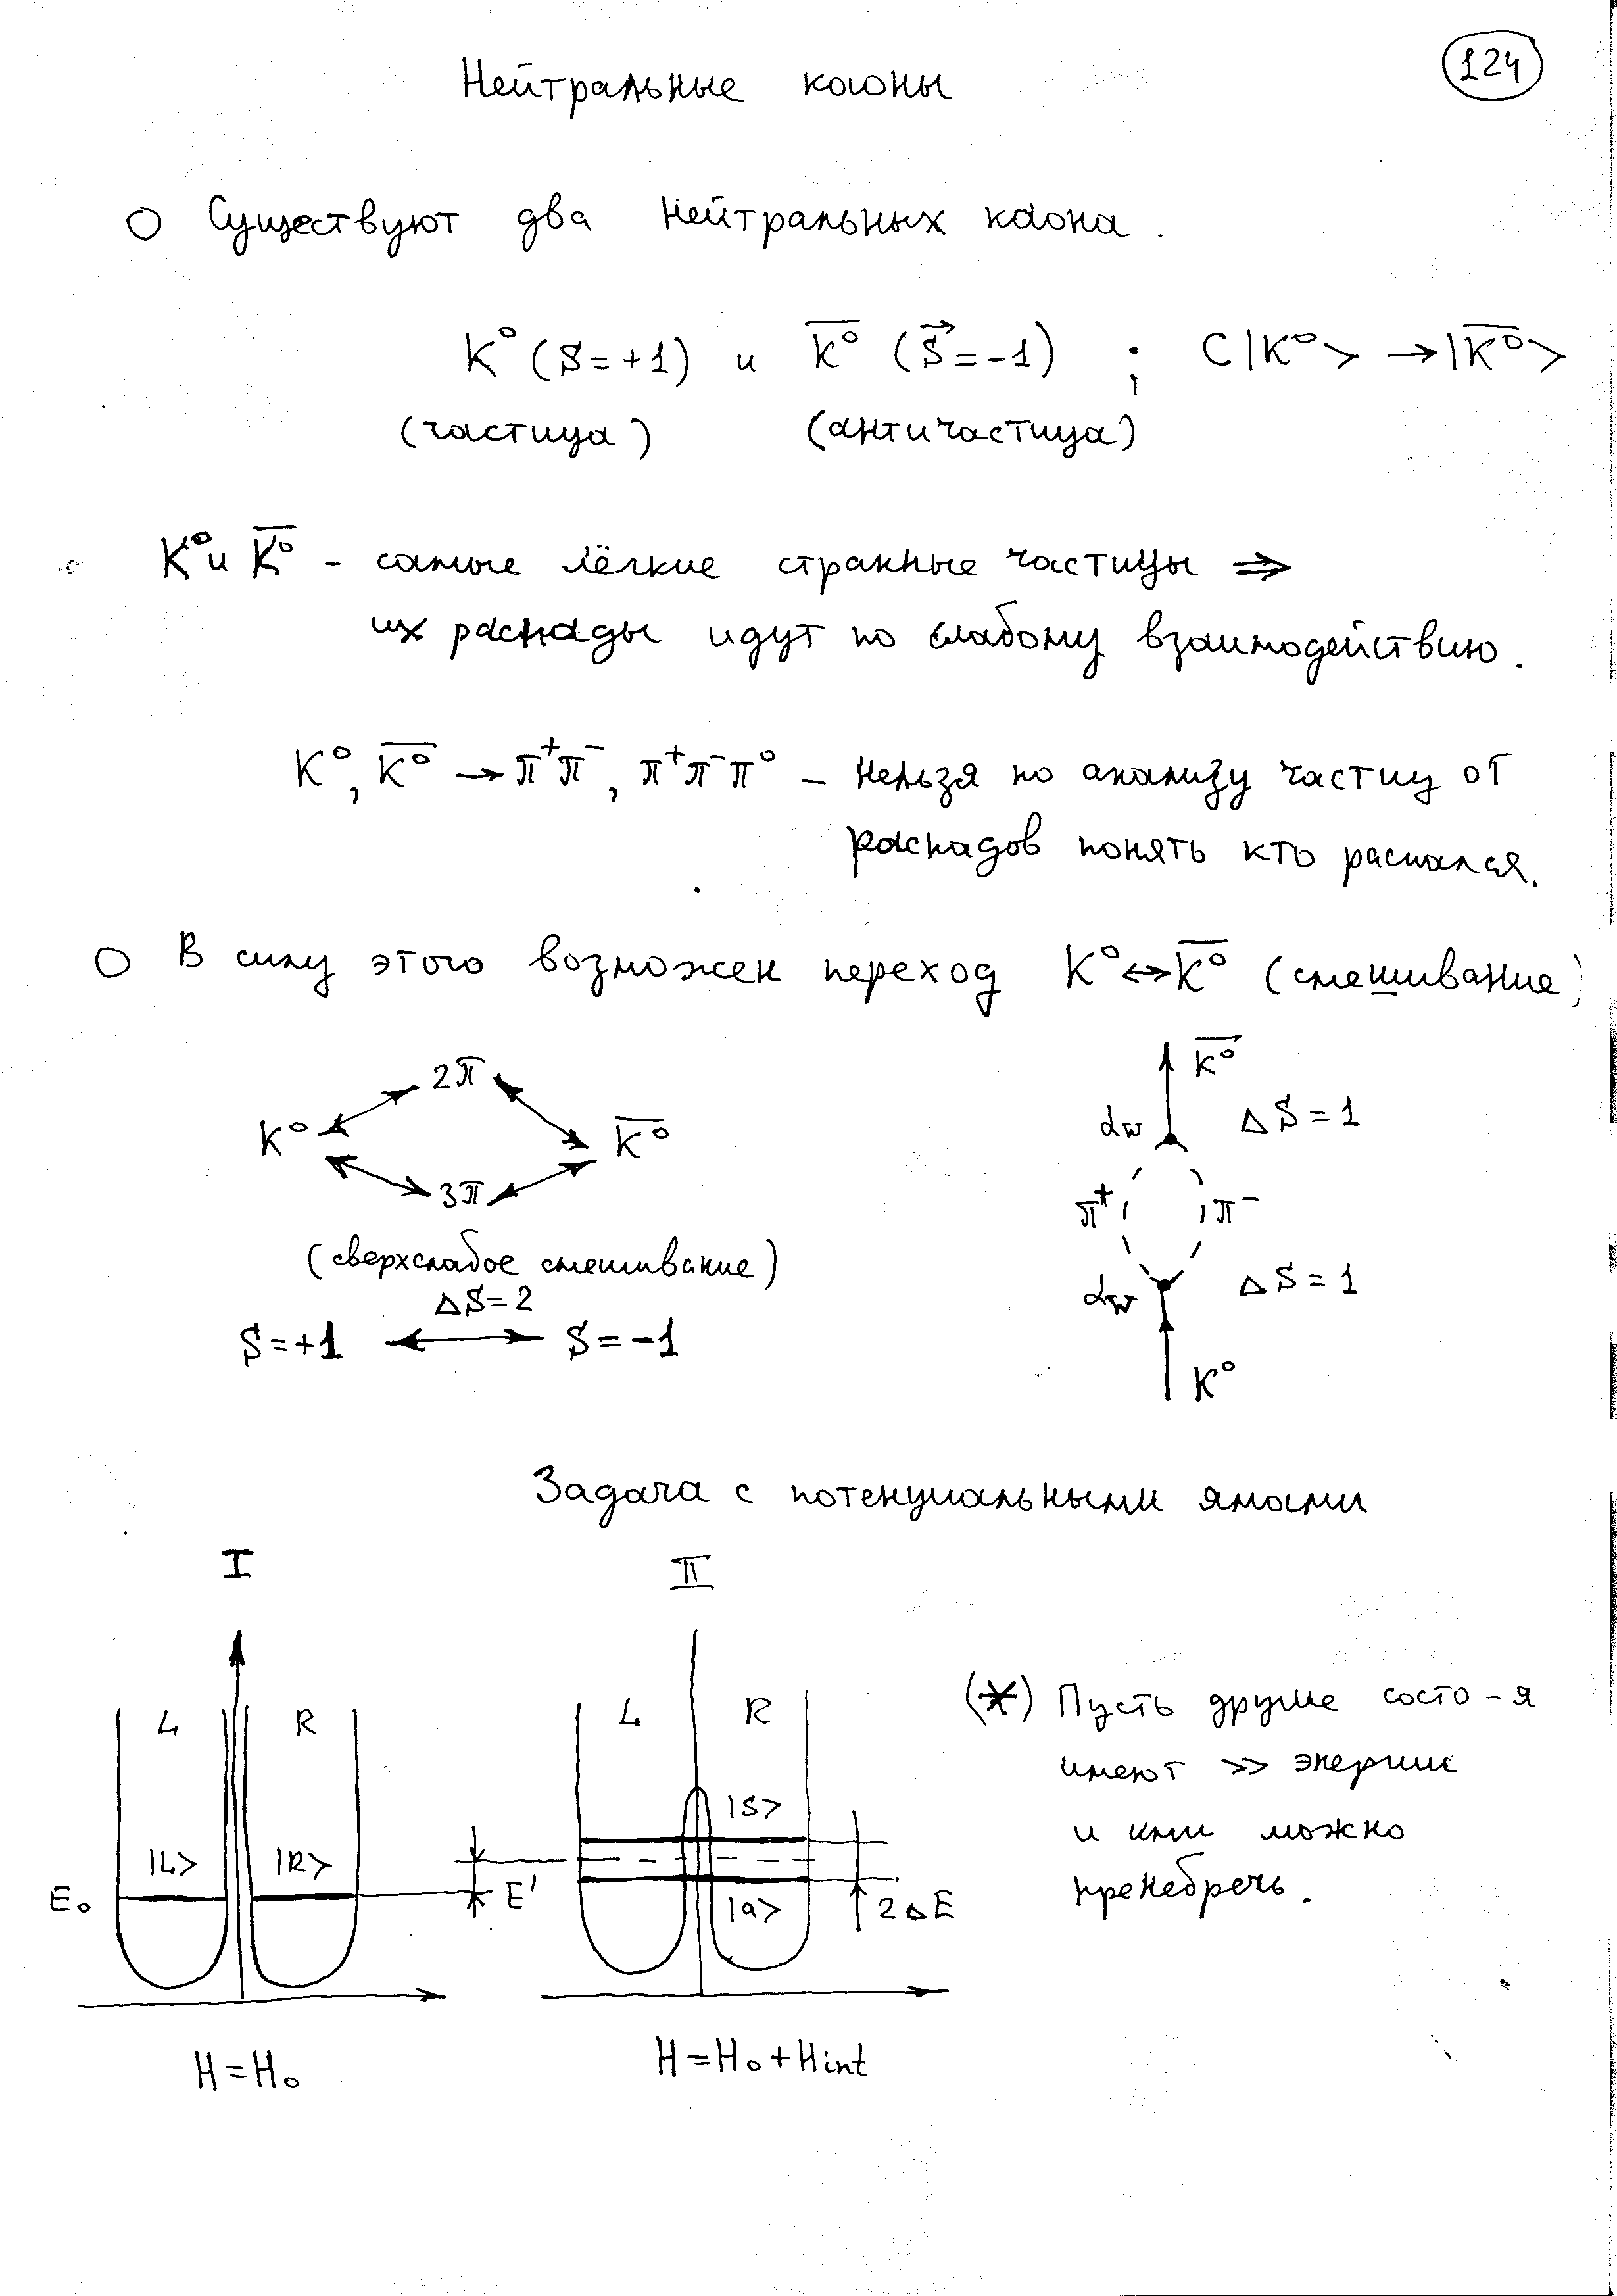 124
Нейтральные каоны
○ Существуют два нейтральных каона.
K⁰ (S=+1) и K̅⁰ (S⃗=-1) ; C|K⁰> → |K̅⁰>
(частица) (античастица)
K⁰ и K̅⁰ - самые лёгкие странные частицы ⇒
их распады идут по слабому взаимодействию.
K⁰, K̅⁰ → π⁺π⁻, π⁺π⁻π⁰ – нельзя по анализу частиц от
распадов понять кто распался.
○ В силу этого возможен переход K⁰↔K̅⁰ (смешивание)
2π
K⁰ K̅⁰
3π
(сверхслабое смешивание)
ΔS=2
S=+1 ↔ S=-1
K̅⁰
α_w ΔS=1
π⁺ π⁻
α_w ΔS=1
K⁰
Задача с потенциальными ямами
I II
L R
|L> |R>
E₀
H=H₀
L R
|S>
E'
|a>
2ΔE
H=H₀+Hint
(*) Пусть другие состо-я
имеют >> энергии
и ими можно
пренебречь.